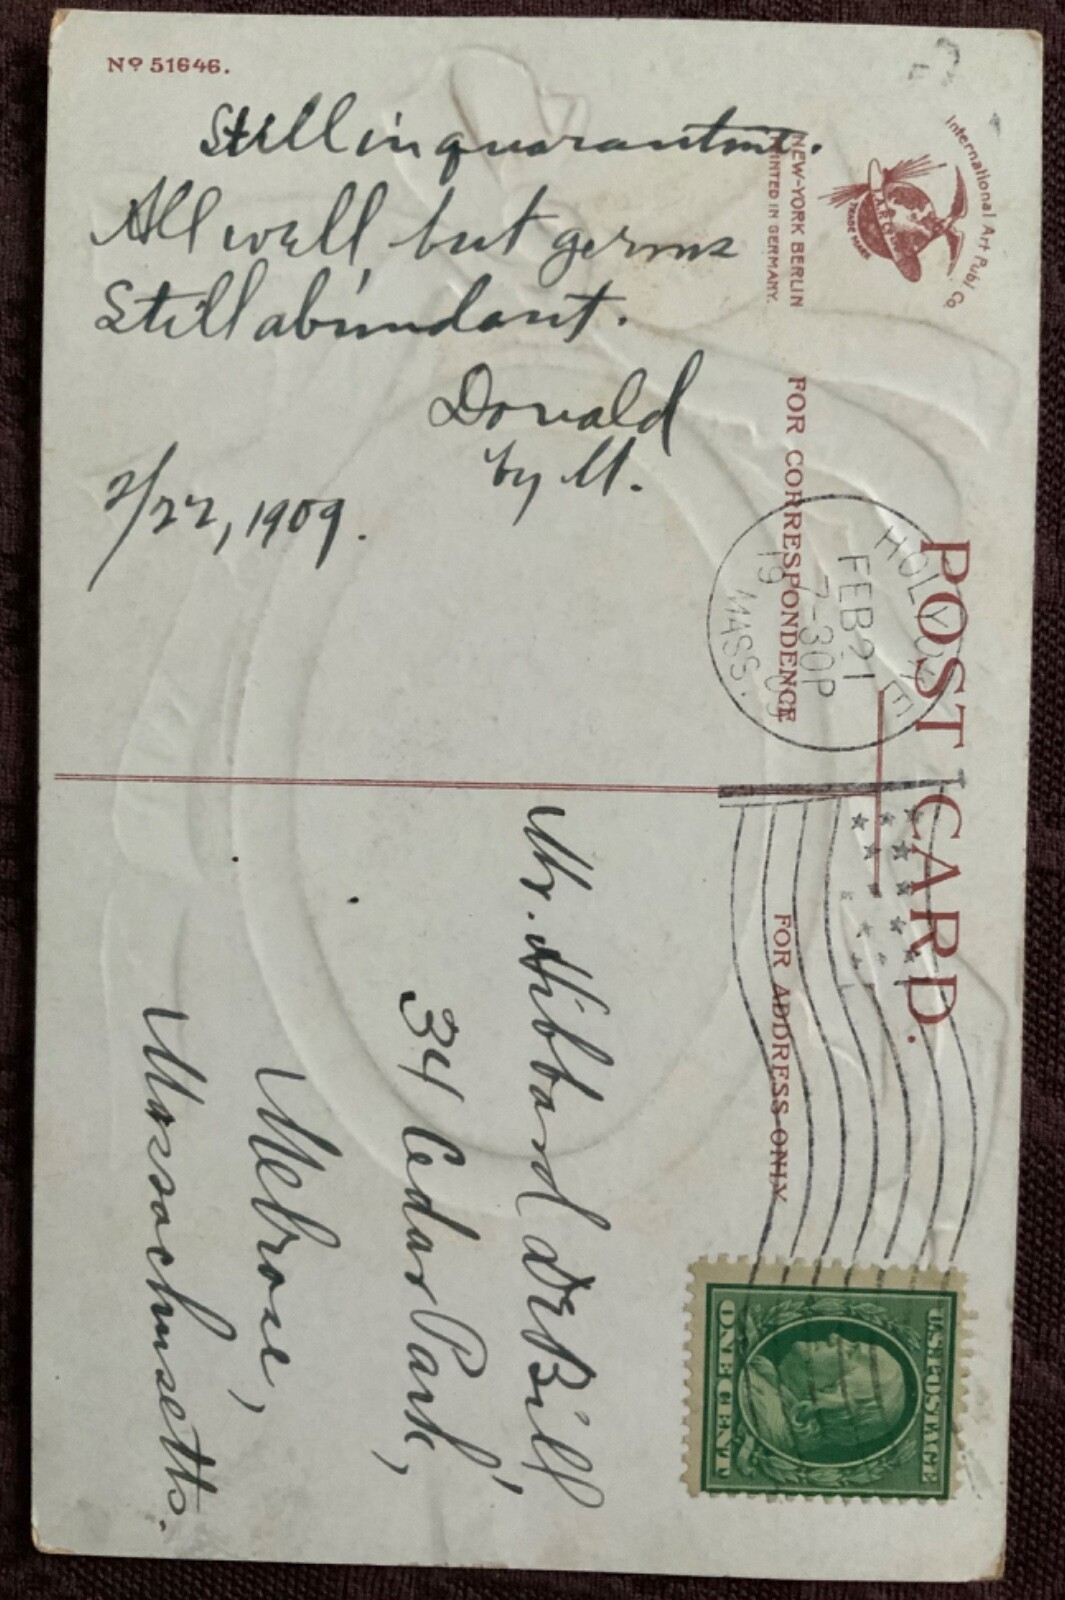 Nº 51646.
Still in quarantine.
All well but germs
Still abundant.
Donald
by M.
2/22, 1909.
International Art Publ. Co.
TRADE MARK
NEW-YORK BERLIN
PRINTED IN GERMANY.
POST CARD.
FOR CORRESPONDENCE
FOR ADDRESS ONLY
HOLYOKE
FEB 21
7-30P
19 09
MASS.
U.S. POSTAGE
ONE CENT
Mr. Hibbard
34 Cedar Park,
Melrose,
Massachusetts.